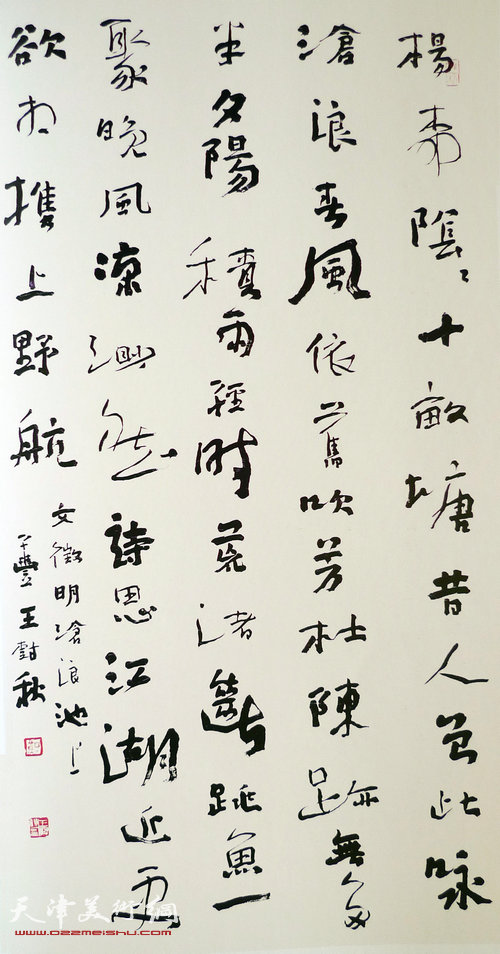 楊柳陰〻十畝塘昔人曾此咏
滄浪春風依舊吹芳杜陳跡無多
半夕陽積雨經時荒渚斷跳魚一
聚晚風涼渺然詩思江湖近便
欲相攜上野航
文徵明滄浪池上
王樹秋
天津美術網
www.022meishu.com